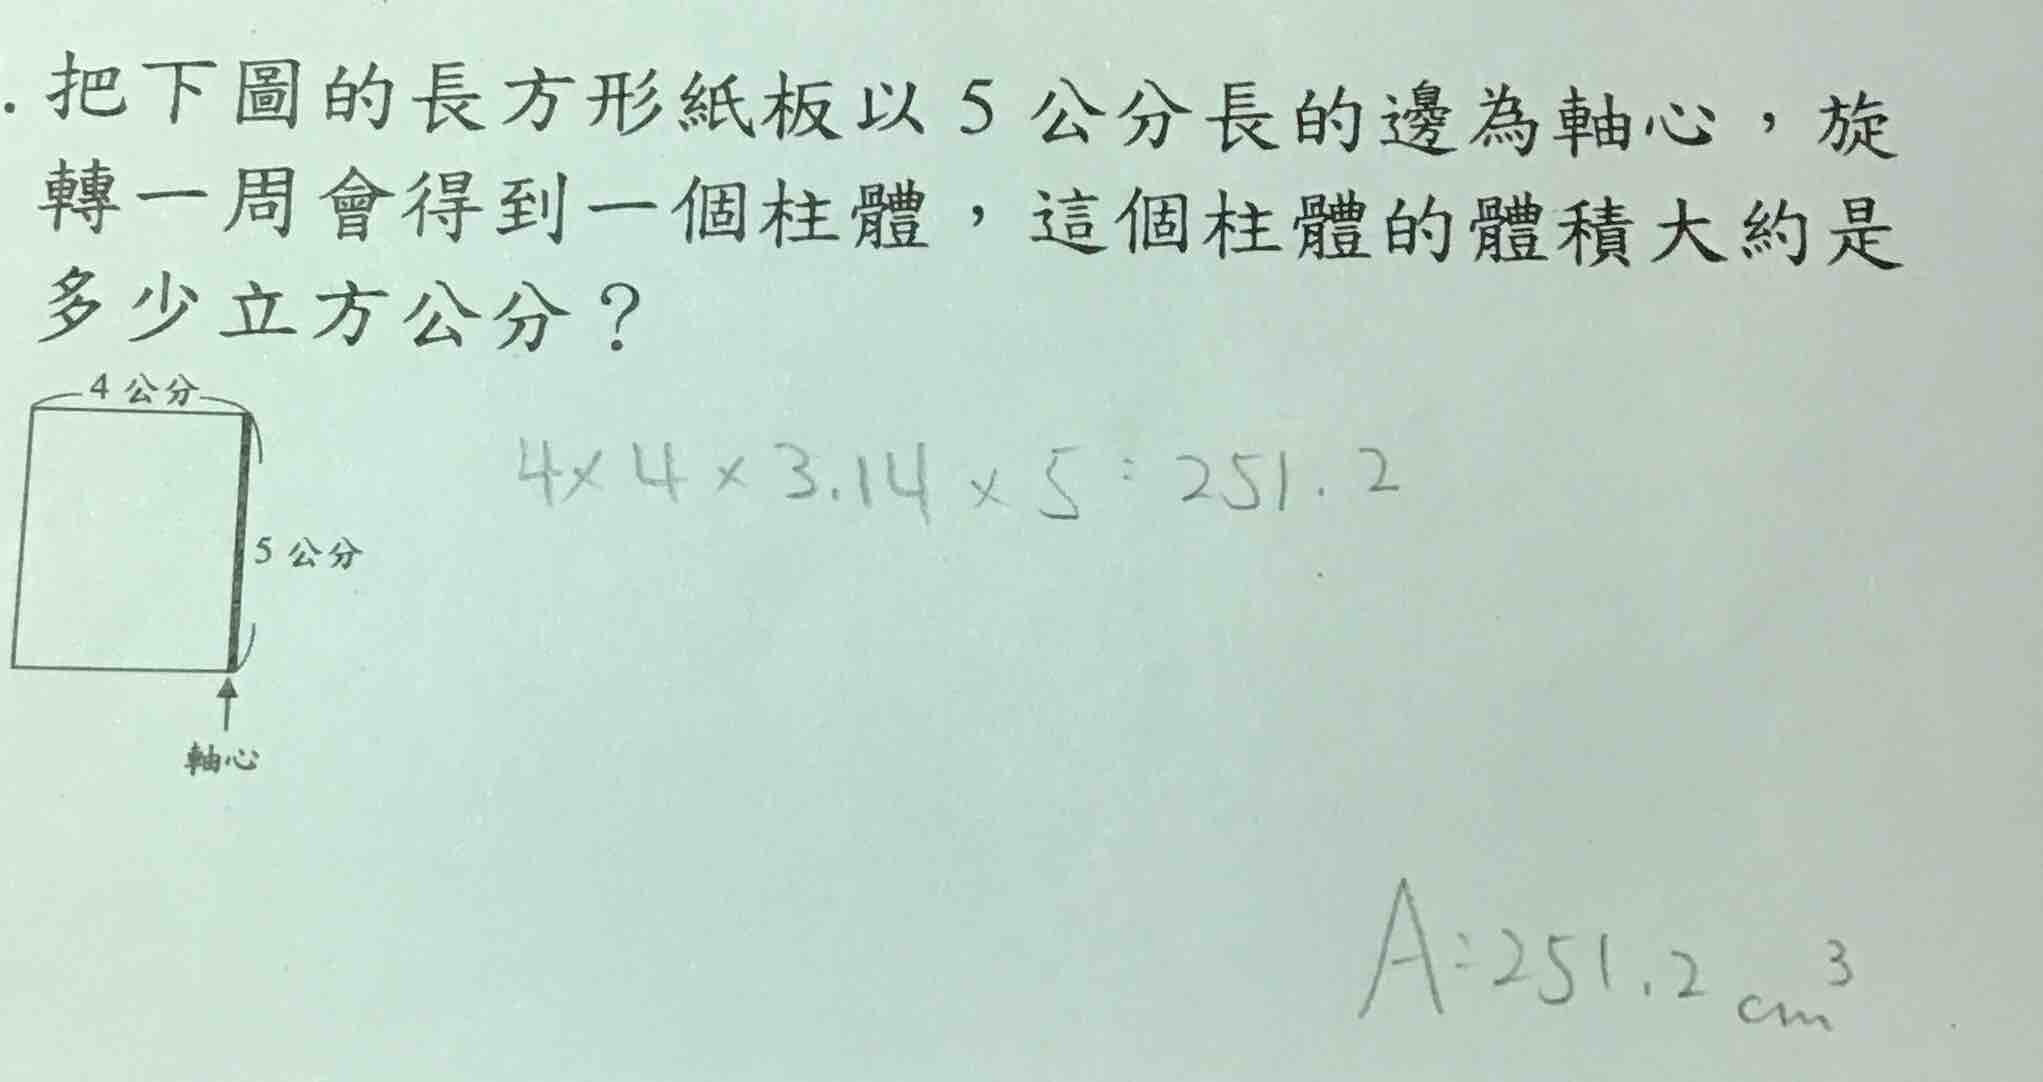 . 把下圖的長方形紙板以 5 公分長的邊為軸心，旋
轉一周會得到一個柱體，這個柱體的體積大約是
多少立方公分？
4 公分
4×4×3.14×5=251.2
5 公分
軸心
A:251.2 cm³